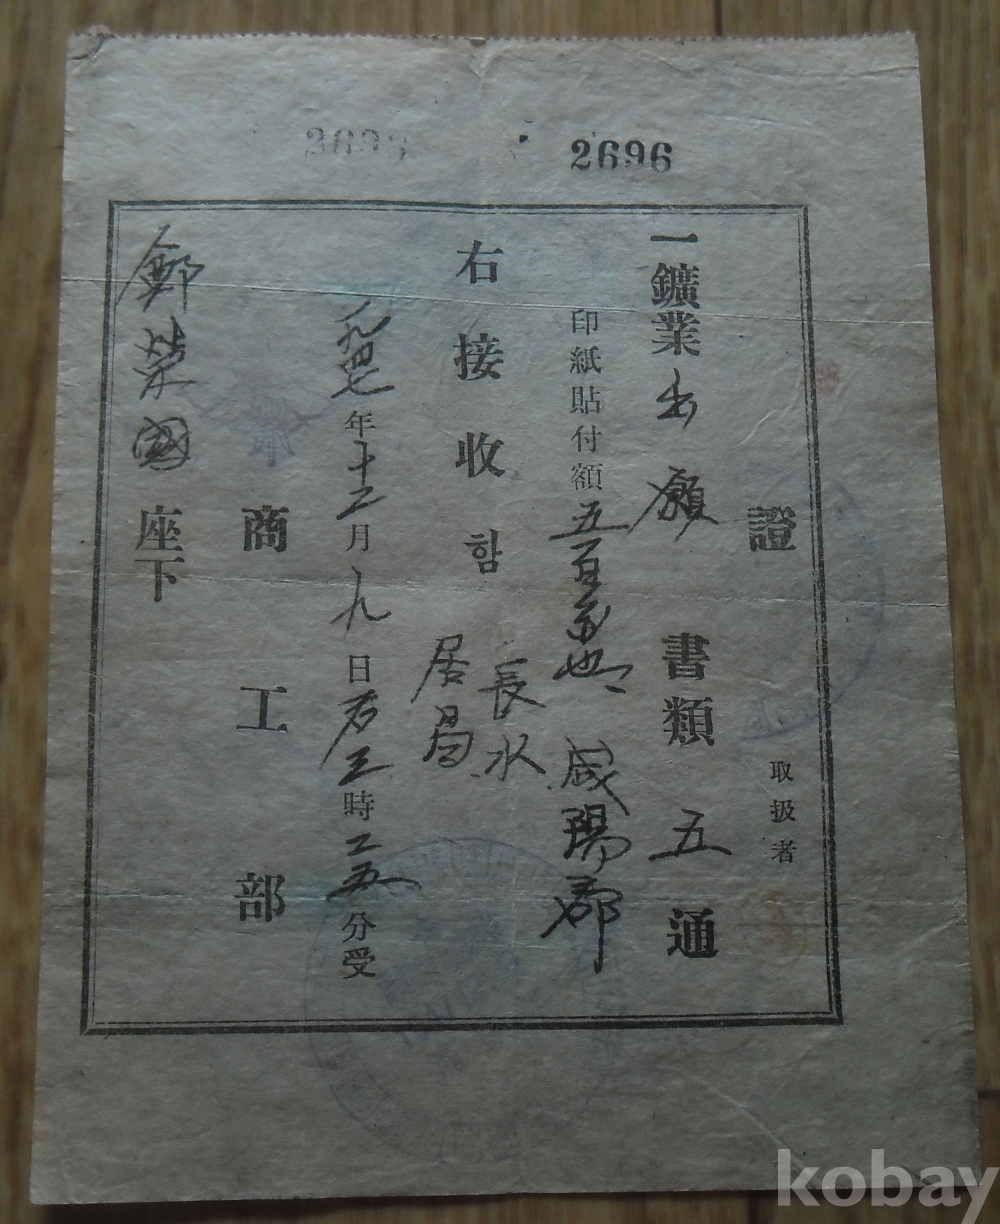 2696
證
取扱者
一鑛業出願書類五通
印紙貼付額五百円也 咸陽郡
右接收함
長水
居昌
一九四七年十二月九日后三時二五分受
商工部
鄭榮國座下
kobay